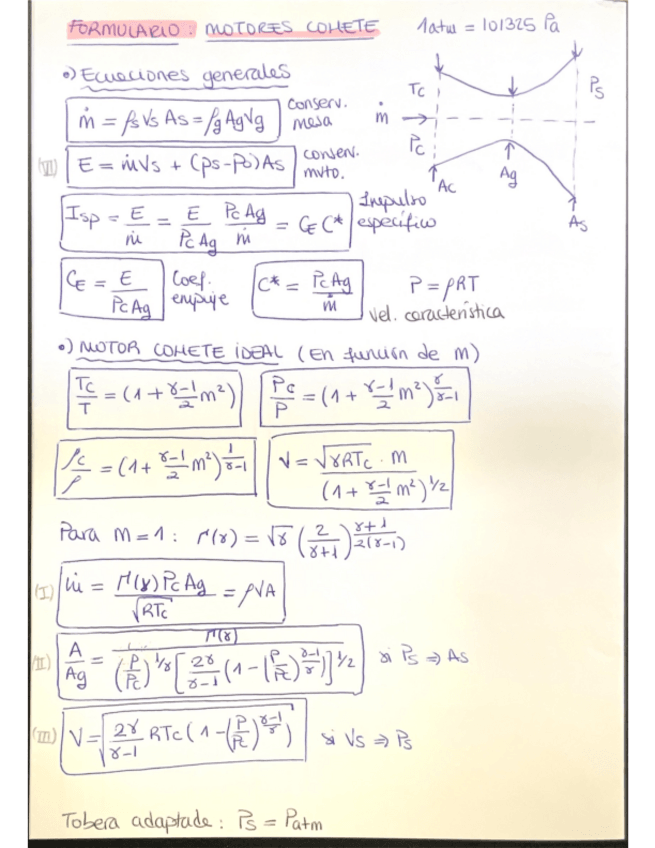 FORMULARIO: MOTORES COHETE 1atm = 101325 Pa
•) Ecuaciones generales
ṁ = ρs Vs As = ρg Ag Vg conserv. masa
(VII) E = ṁVs + (Ps - Po)As conserv. mvto.
Isp = E/ṁ = E/(Pc Ag) · (Pc Ag)/ṁ = CE C* Impulso específico
CE = E/(Pc Ag) Coef. empuje C* = (Pc Ag)/ṁ Vel. característica P = ρRT
Tc Pc ṁ Ac Ag As Ps
•) MOTOR COHETE IDEAL (En función de M)
Tc/T = (1 + (γ-1)/2 M²) Pc/P = (1 + (γ-1)/2 M²)^(γ/(γ-1))
ρc/ρ = (1 + (γ-1)/2 M²)^(1/(γ-1)) V = (√(γRTc) · M)/(1 + (γ-1)/2 M²)^(1/2)
Para M = 1: Γ(γ) = √γ (2/(γ+1))^((γ+1)/(2(γ-1)))
(I) ṁ = (Γ(γ) Pc Ag)/√(RTc) = ρVA
(II) A/Ag = Γ(γ)/((P/Pc)^(1/γ) [2γ/(γ-1) (1 - (P/Pc)^((γ-1)/γ))]^(1/2)) si Ps ⇒ As
(III) V = √(2γ/(γ-1) RTc (1 - (P/Pc)^((γ-1)/γ))) si Vs ⇒ Ps
Tobera adaptada: Ps = Patm